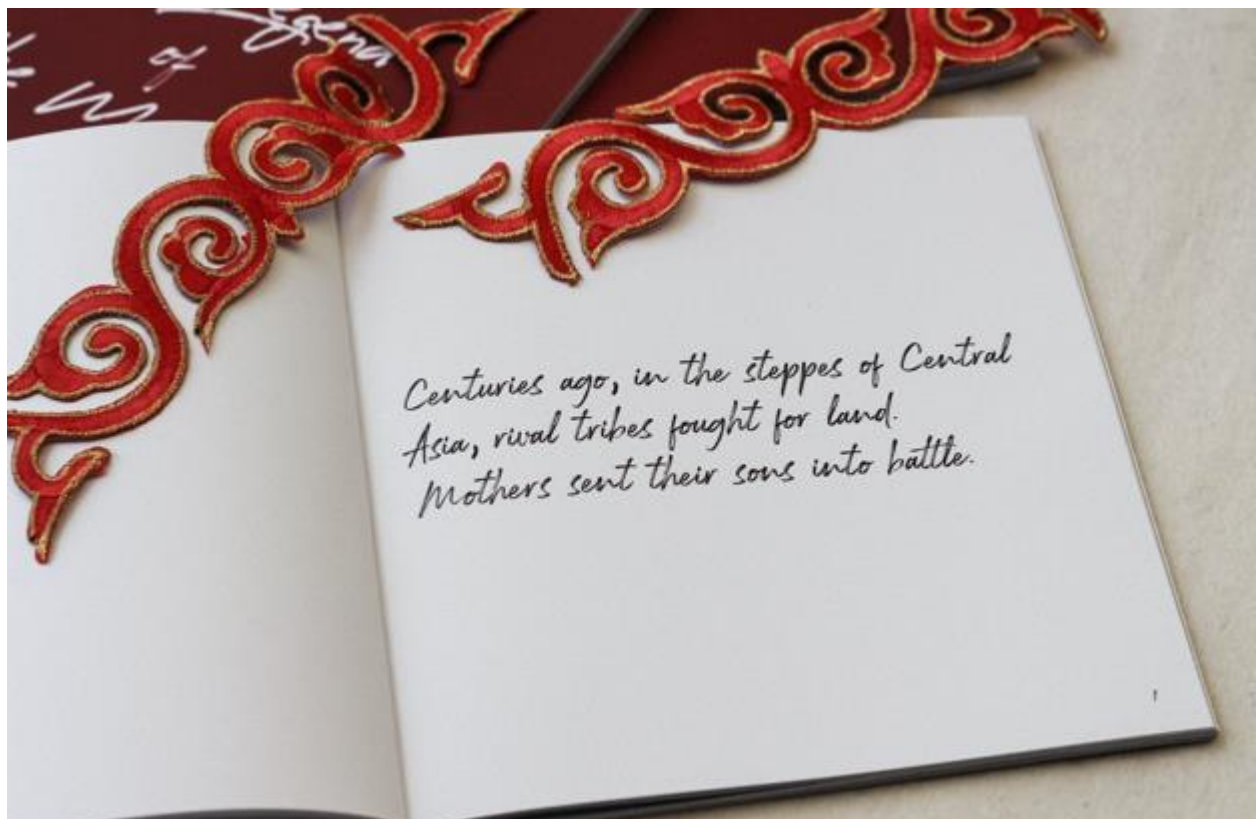 of
Centuries ago, in the steppes of Central
Asia, rival tribes fought for land.
Mothers sent their sons into battle.
1